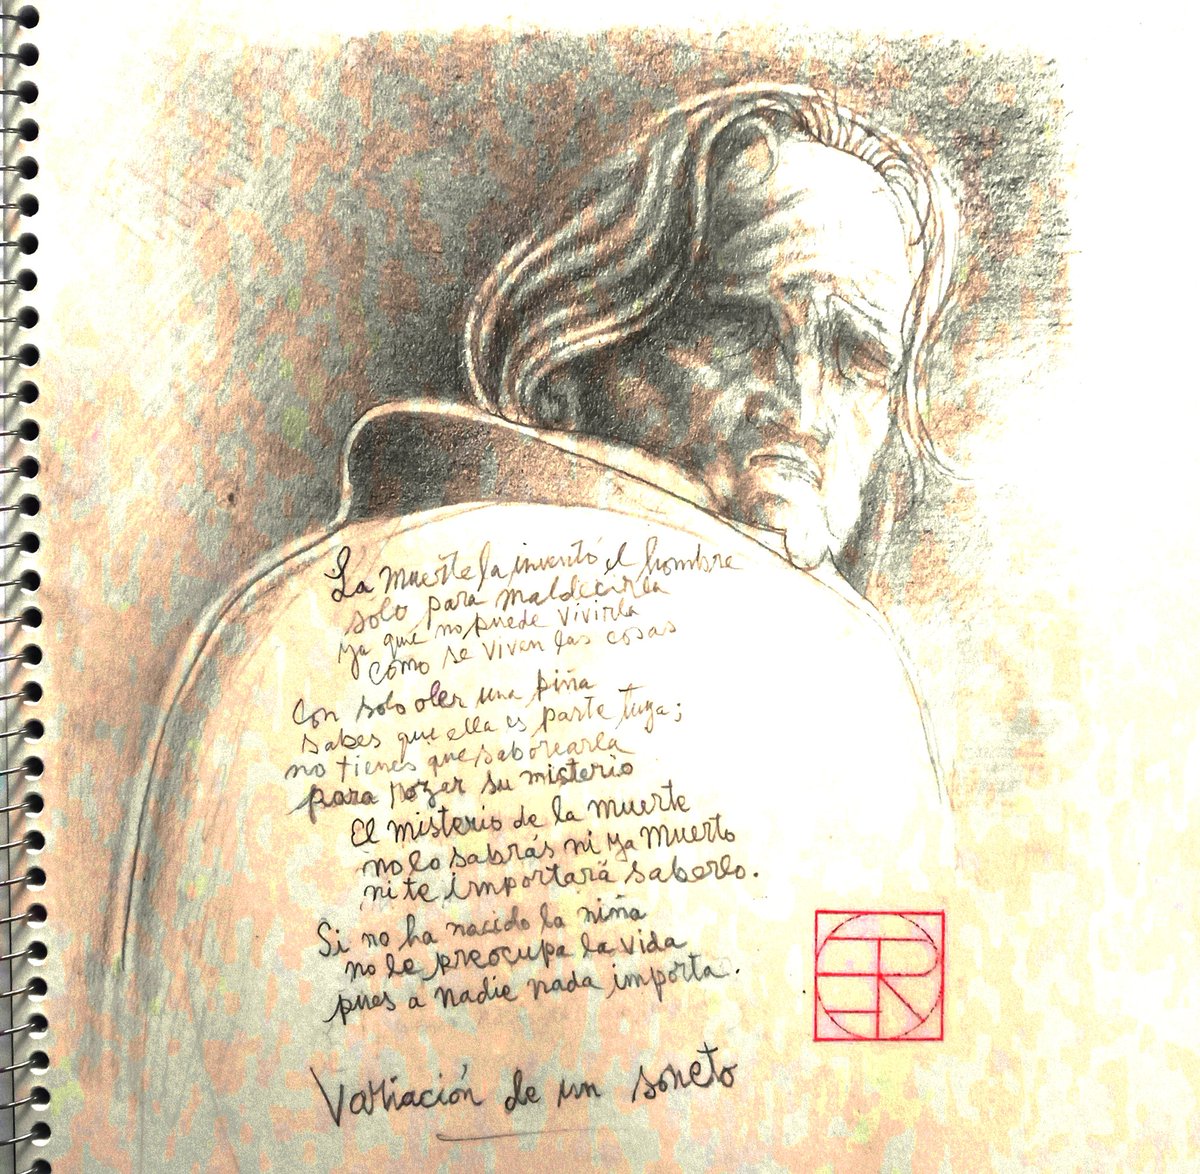 La muerte la inventó el hombre
solo para maldecirla
ya que no puede vivirla
como se viven las cosas
Con solo oler una piña
sabes que ella es parte tuya;
no tienes que saborearla
para rozar su misterio
El misterio de la muerte
no lo sabrás ni ya muerto
ni te importará saberlo.
Si no ha nacido la niña
no le preocupa la vida
pues a nadie nada importa.
Variación de un soneto